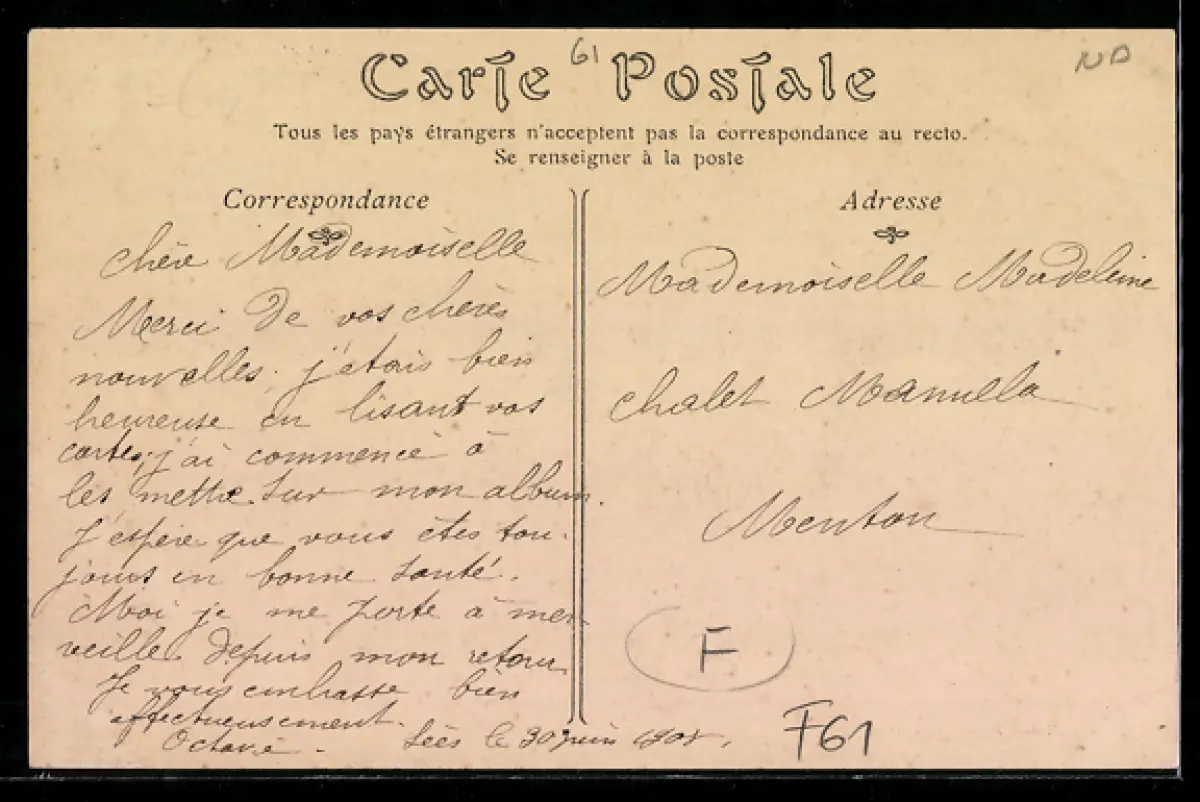 61
ND
Carte Postale
Tous les pays étrangers n'acceptent pas la correspondance au recto.
Se renseigner à la poste
Correspondance
chère Mademoiselle
Merci de vos chères
nouvelles. j'étais bien
heureuse en lisant vos
cartes, j'ai commencé à
les mettre sur mon album.
J'espère que vous êtes tou-
jours en bonne santé.
Moi je me porte à mer-
veille depuis mon retour
Je vous embrasse bien
affectueusement.
Sées le 30 juin
Adresse
Mademoiselle Madeleine
chalet
Menton
F
F61